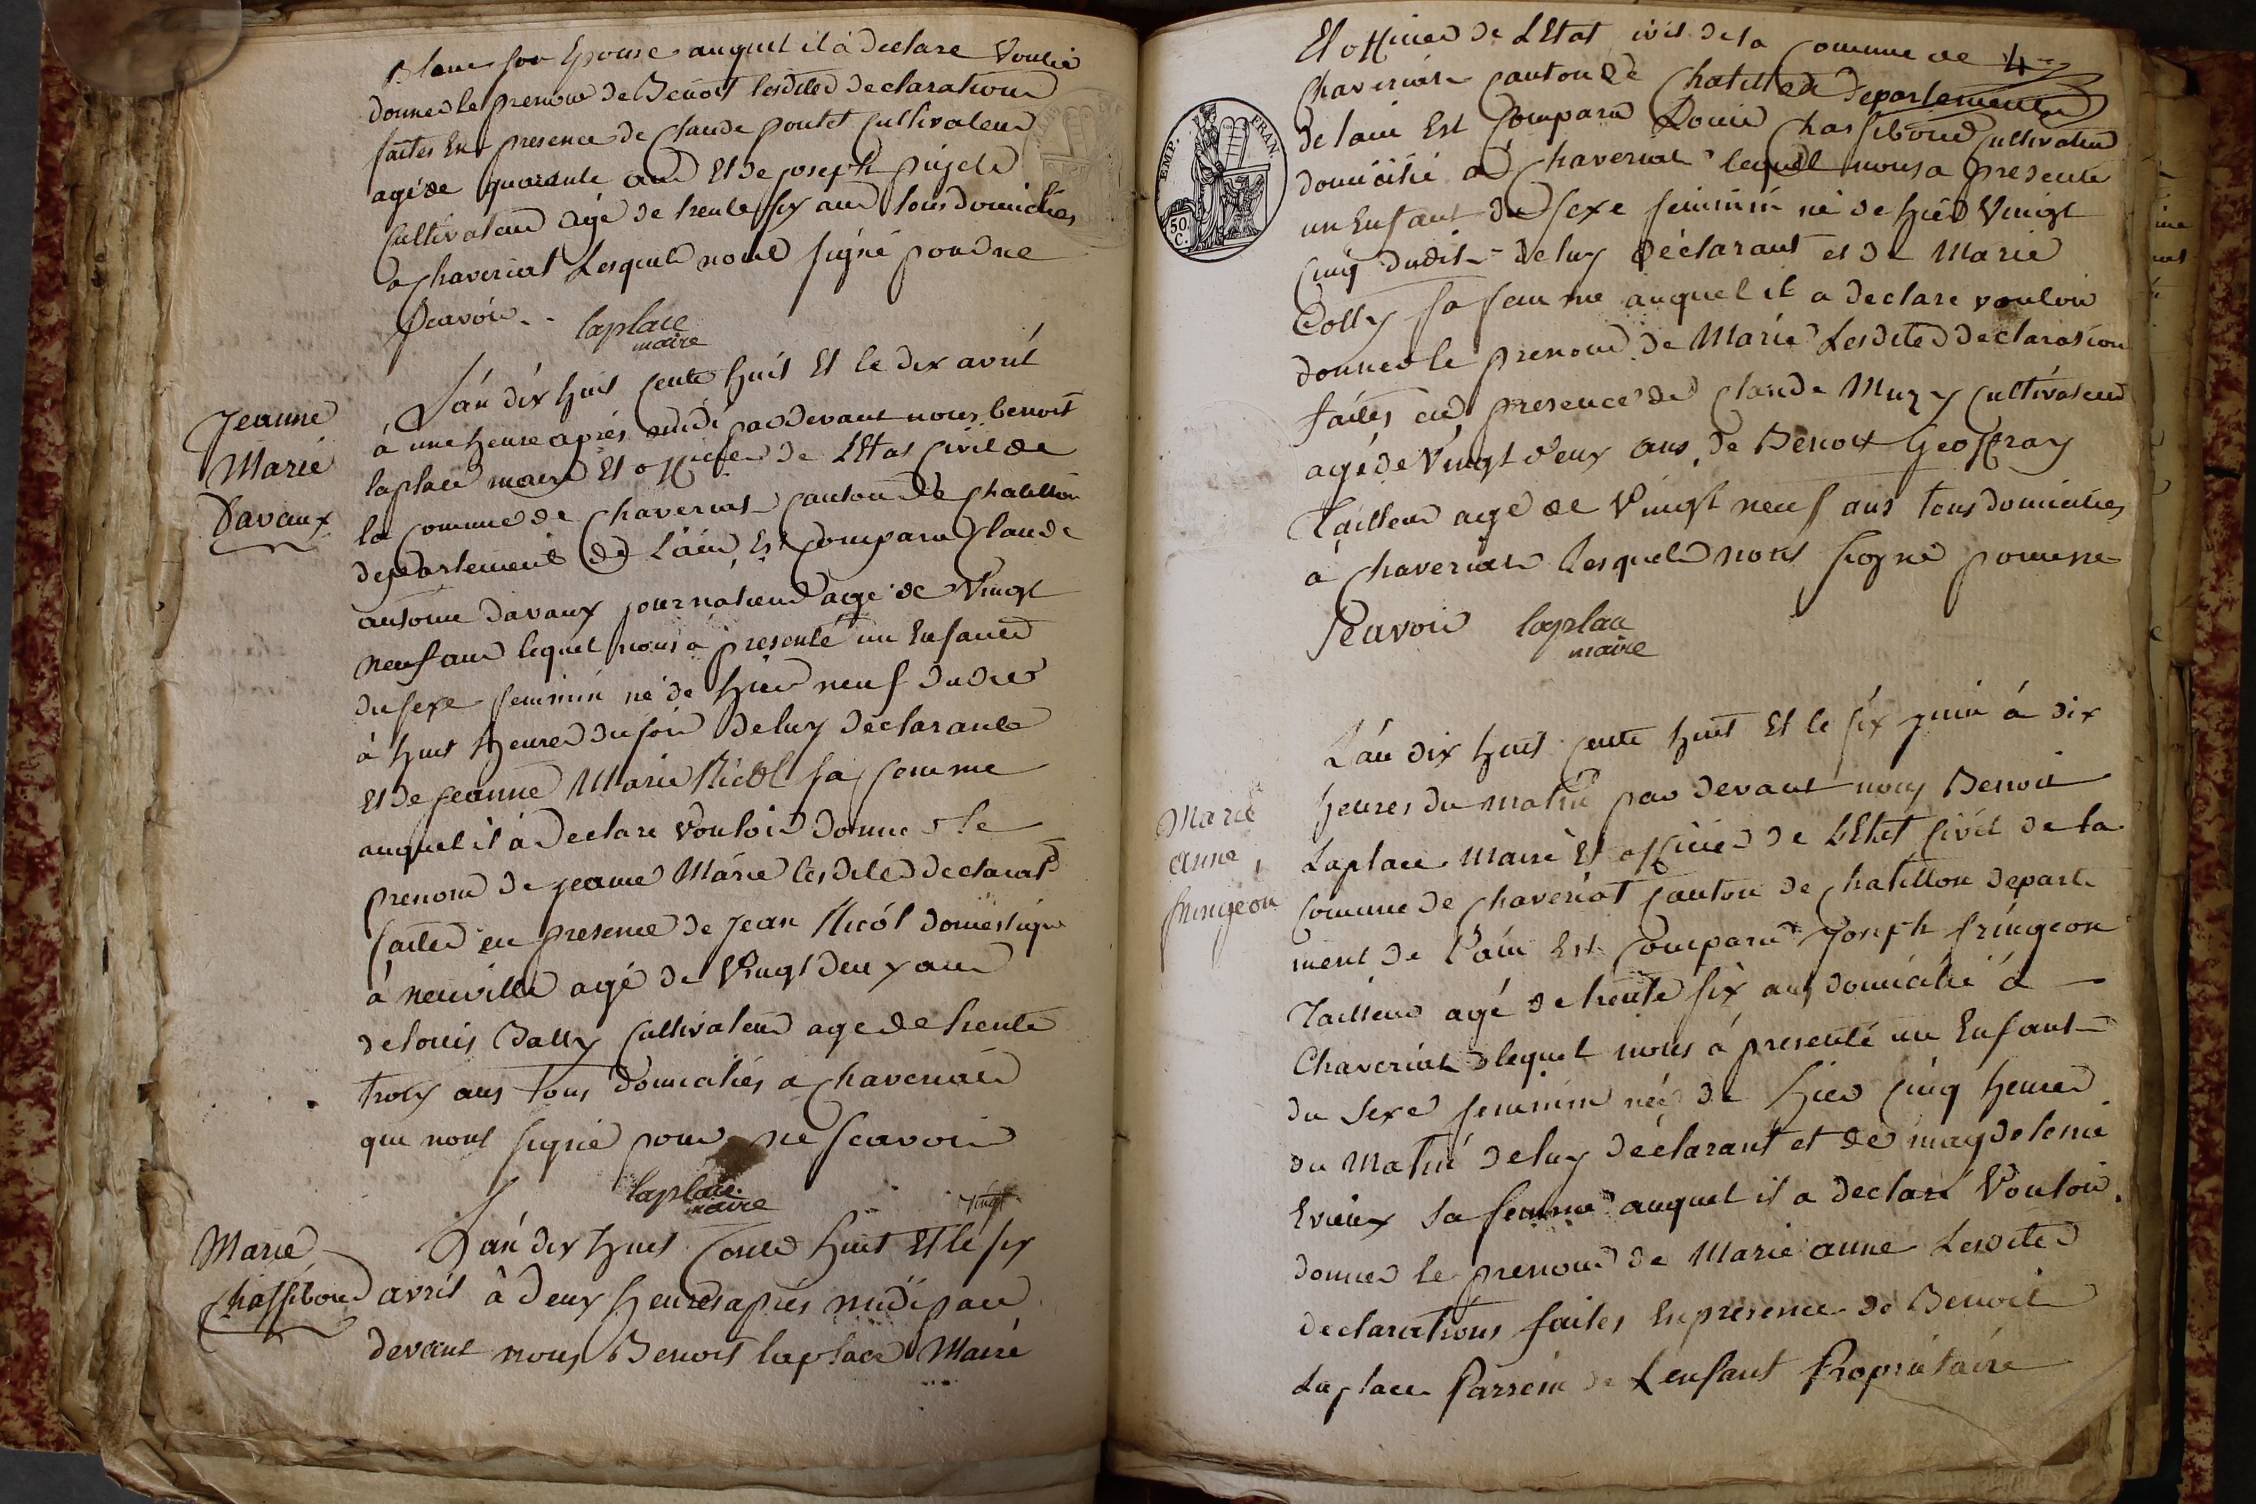 son Epouse auquel il à declaré Vouloir
donner le prenom de Benoit lesdites declarations
faites En presence de Claude poulet Cultivateur
agé de quarante ans Et de joseph
Cultivateur agé de trente six ans tous domiciliés
a Chaveriat Lesquels n'ont signé pour ne
sçavoir
laplace
maire
L'an dix huit cents huit Et le dix avril
Jeanne
Marie
Davaux
à une heure après midi pardevant nous benoit
laplace maire Et officier de L'Etat Civil de
la Commune de Chaveriat Canton de Chatillon
departement de L'ain, Est Comparu Claude
antoine davaux journalier agé de Vingt
neuf ans lequel nous à presenté un Enfant
du sexe feminin né de hier neuf dudit
à huit heures du soir De luy déclarant
Et de jeanne Marie Nicol sa femme
auquel il à declaré vouloir donner le
prenom de jeanne Marie lesdites declarat
faites en presence de jean Nicol domestique
à neuville agé de Vingt deux ans
de louis Bally Cultivateur agé de trente
troix ans tous domiciliés a Chaveriat
qui n'ont signé pour ne scavoir
laplace
maire
vingt
Marie
Chassibout
L'an dix huit Cents huit Et le six
avril à deux heures après midi par
devant nous Benoit laplace Maire
Et officier de L'Etat civil de la Commune de
Chaveriat Canton de Chatillon departement
EMP. FRAN.
50 C.
de l'ain Est Comparu Louis Chassibout Cultivateur
domicilié à Chaveriat lequel nous a presenté
un Enfant du sexe feminin né de hier Vingt
Cinq dudit de luy déclarant et de Marie
Colly sa femme auquel il a declaré vouloir
donner le prenom de Marie Lesdites declaration
faites en presence de Claude Muzy Cultivateur
agé de Vingt deux ans, de Benoit Geoffray
Tailleur agé de Vingt neuf ans tous domiciliés
à Chaveriat Lesquels n'ont signé pour ne
sçavoir laplace
maire
L'an dix huit cents huit Et le six juin à dix
Marie
anne
fringeon
heures du matin par devant nous Benoit
Laplace Maire Et officier de L'Etat Civil de la
Commune de Chaveriat Canton de Chatillon départe
ment de l'ain Est Comparu Joseph fringeon
Tailleur agé de trente six ans domicilié à
Chaveriat lequel nous à presenté un Enfant
du Sexe feminin née de hier Cinq heures
du Matin de luy déclarant et de magdeleine
sa femme auquel il a declaré Vouloir
donner le prenom de Marie anne Lesdites
declarations faites En présence de Benoit
Laplace Parrein de L'enfant Propriétaire